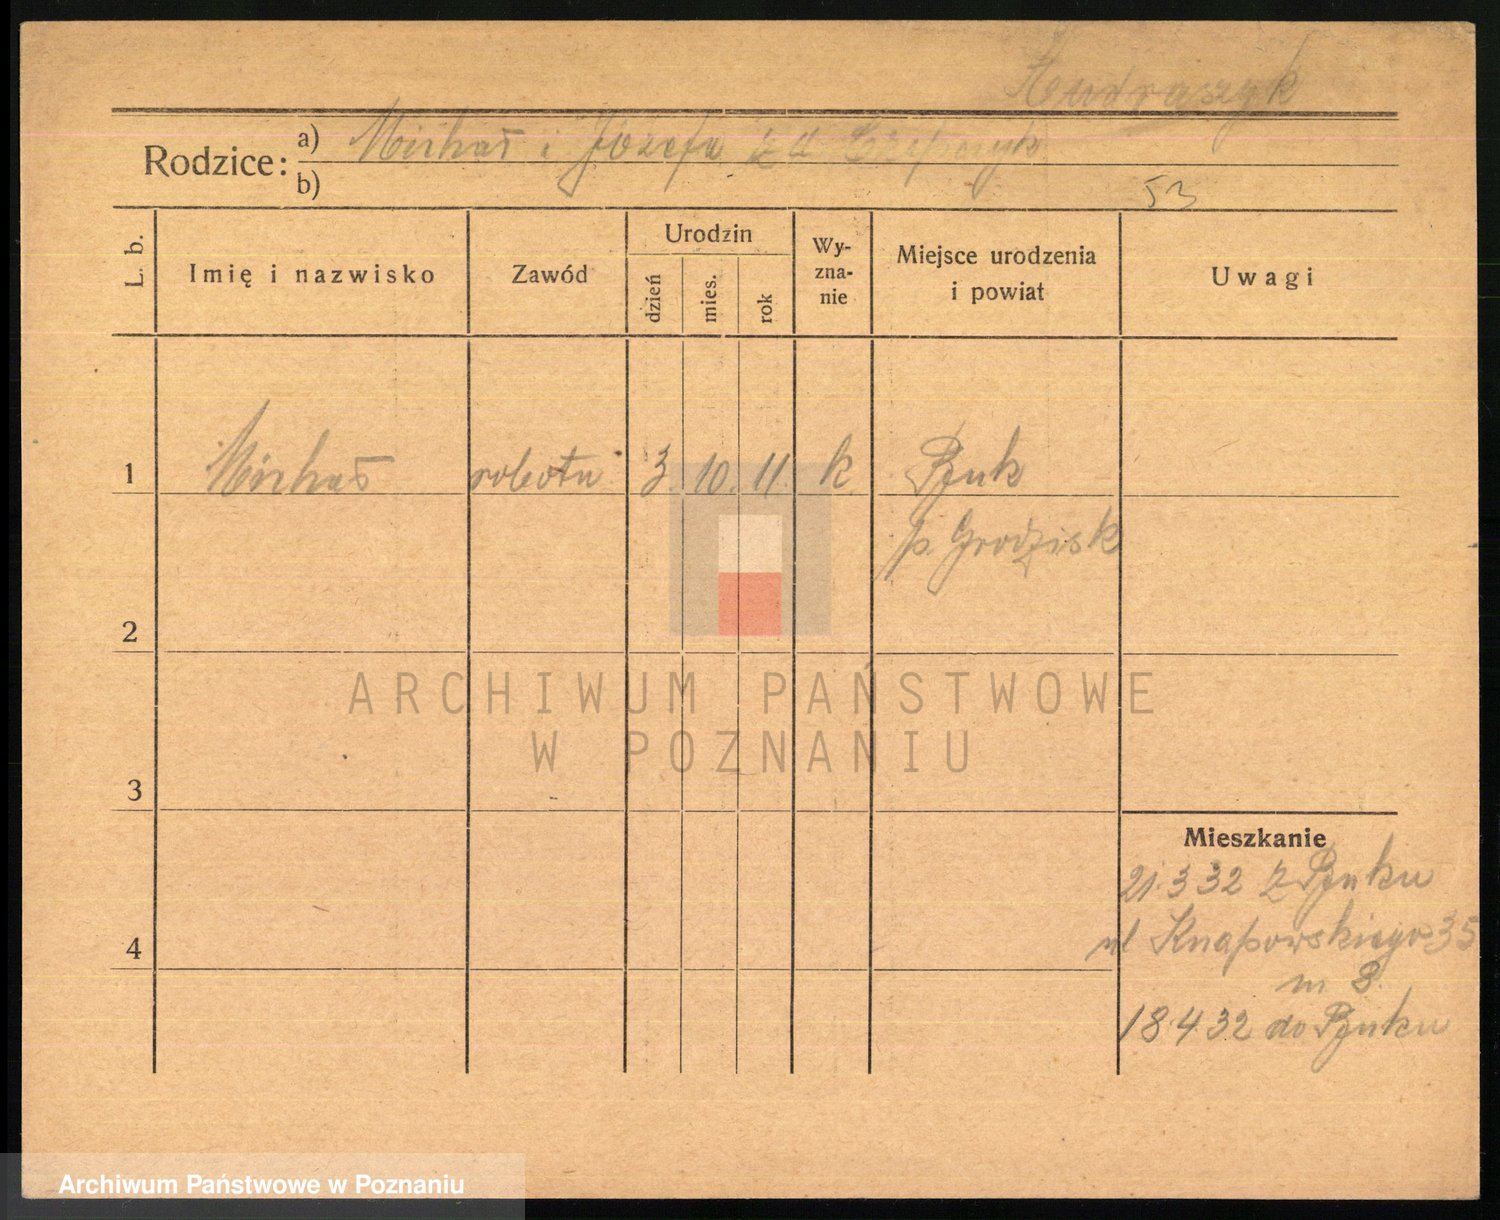 Andraszyk
Rodzice: a) Michał i Józefa z d.
b)
53
L. b.
Imię i nazwisko
Zawód
Urodzin
dzień
mies.
rok
Wy-
zna-
nie
Miejsce urodzenia
i powiat
Uwagi
1 Michał robotn 3. 10. 11. k. Ptuk
p. Grodzisk
2
3
4
ARCHIWUM PAŃSTWOWE
W POZNANIU
Mieszkanie
21.3 32 z
ul Knapowskiego 35
m 8.
18.4 32 do
Archiwum Państwowe w Poznaniu